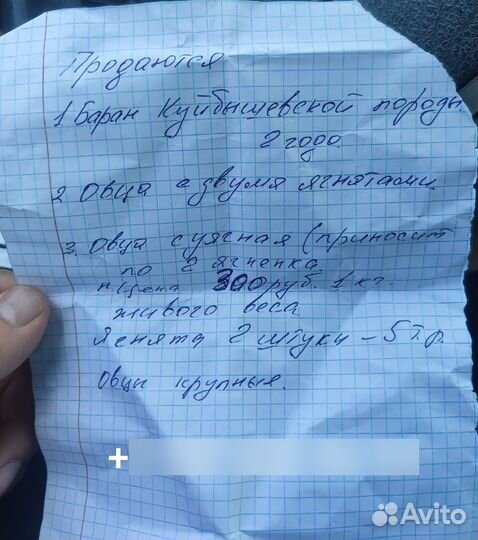 Продаются
1 Баран Куйбышевской породы
2 года.
2 Овца с двумя ягнятами.
3. Овца суягная (приносит
по 2 ягненка
Цена 300 руб. 1 кг.
живого веса
Ягнята 2 штуки - 5 т.р.
Овцы крупные.
+
Avito